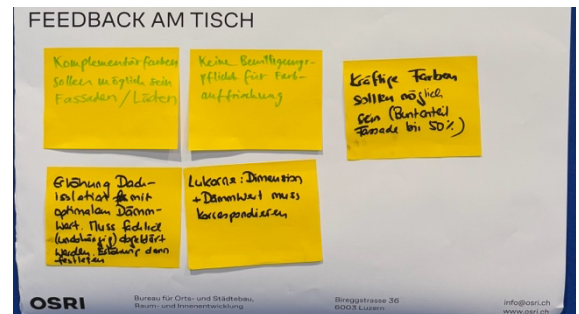 FEEDBACK AM TISCH
Komplementärfarben
sollen möglich sein
Fassaden/Läden
Keine Bewilligungs-
pflicht für Farb-
auffrischung
Kräftige Farben
sollen möglich
sein (Buntanteil
Fassade bis 50%)
Erhöhung Dach-
isolation mit
optimalem Dämm-
wert. Muss fachlich
(unabhängig) abgeklärt
werden. Erhöhung dann
festlegen
Lukarne: Dimension
+ Dämmwert muss
korrespondieren
OSRI
Bureau für Orts- und Städtebau,
Raum- und Innenentwicklung
Bireggstrasse 36
6003 Luzern
info@osri.ch
www.osri.ch